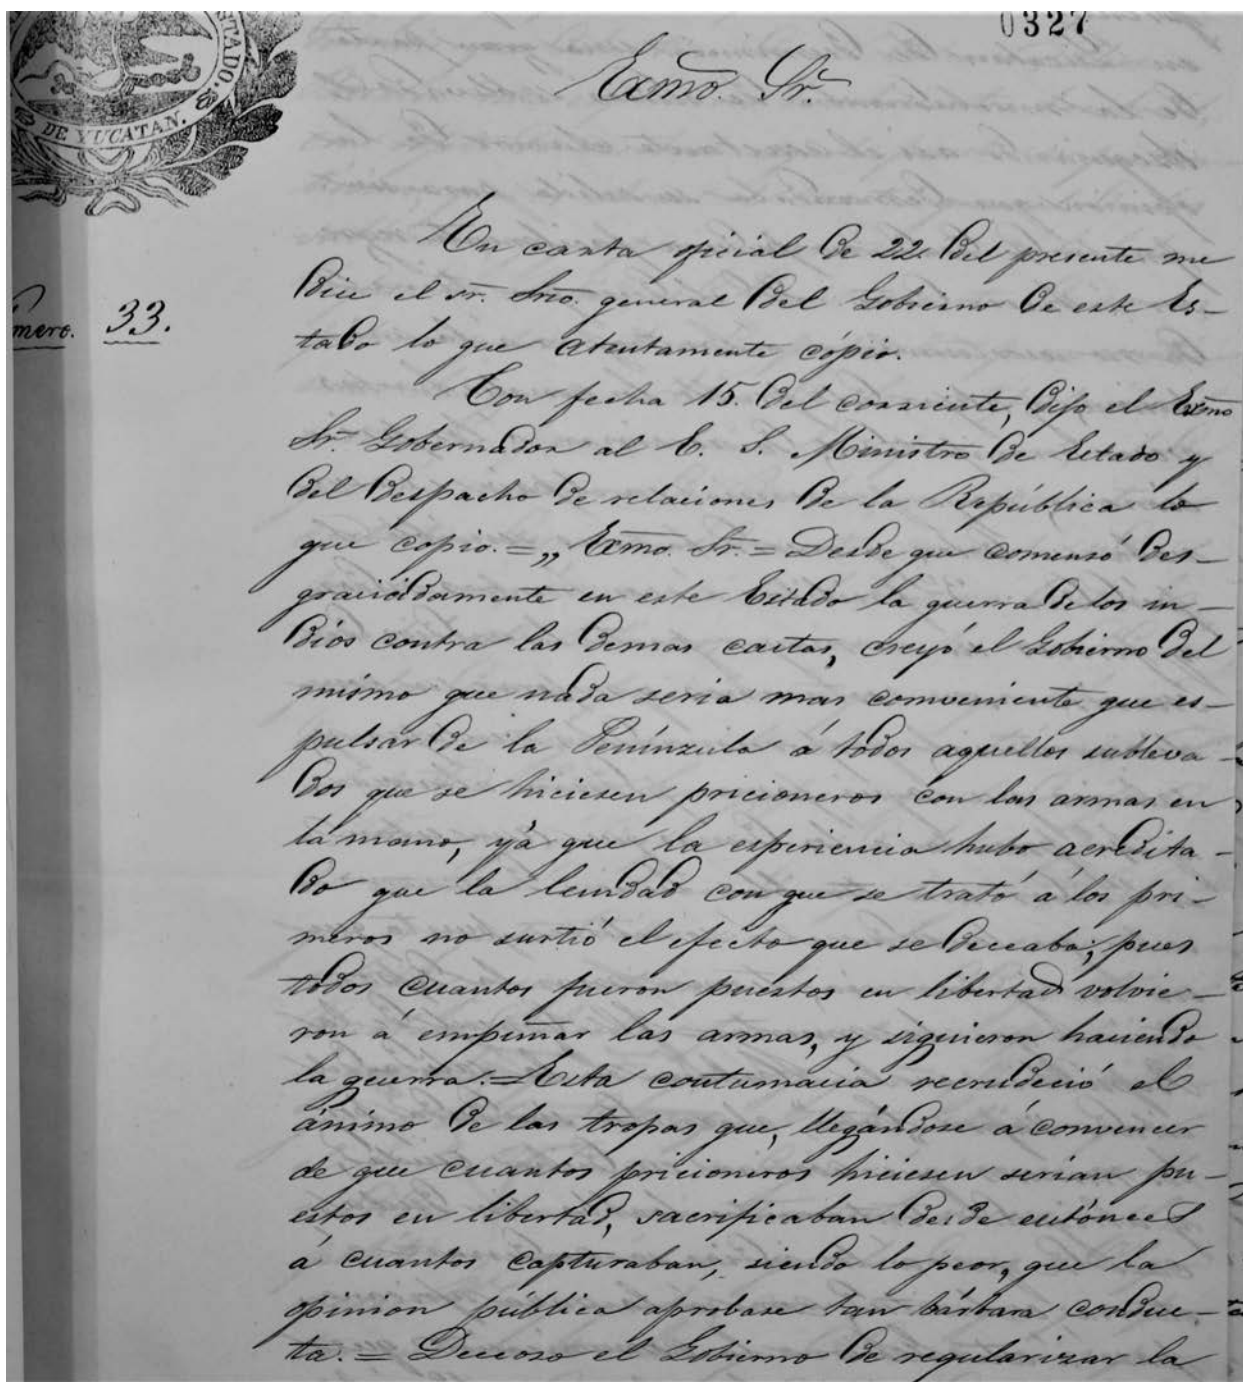 0327
ESTADO.
DE YUCATAN.
Exmo. Sr.
En carta oficial de 22. del presente me
dice el sr. Srio. general del Gobierno de este Es-
mero. 33.
tado lo que atentamente cópio.
Con fecha 15. del corriente, dijo el Exmo
Sr. Gobernador al E. S. Ministro de Estado y
del Despacho de relaciones de la República lo
que copio. = „ Exmo. Sr. = Desde que comensó des-
graciádamente en este Estado la guerra de los in-
dios contra las demas castas, creyó el Gobierno del
mismo que nada seria mas comveniente que es-
pulsar de la Penínzula á todos aquellos subleva-
dos que se hiciesen pricioneros con las armas en
la mano, yá que la esperiencia hubo acredita-
do que la lenidad con que se trató á los pri-
meros no surtió el efecto que se deceaba, pues
todos cuantos fueron puestos en libertad volvie-
ron á empuñar las armas, y siguieron haciendo
la guerra. = Esta contumacia recrudeció el
ánimo de las tropas que, llegándose á convencer
de que cuantos pricioneros hiciesen serian pu-
estos en libertad, sacrificaban desde entónces
á cuantos capturaban, siendo lo peor, que la
opinion pública aprobase tan bárbara conduc-
ta. = Deceoso el Gobierno de regularizar la